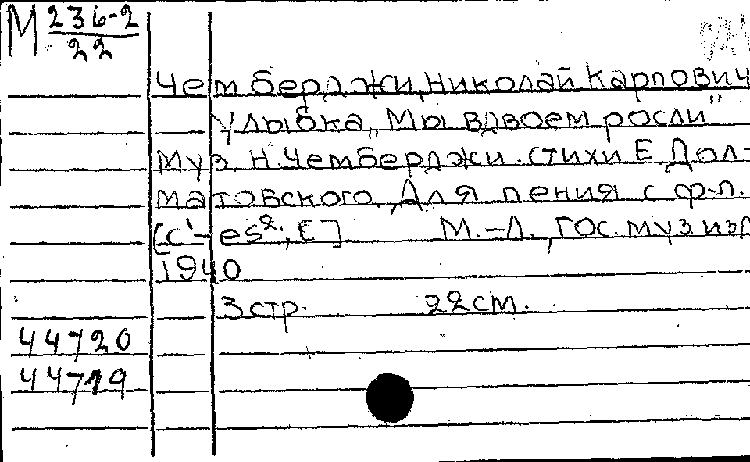 М 236-2
22
Чемберджи, Николай Карпович
Улыбка „Мы вдвоем росли"
муз. Н. Чемберджи. стихи Е. Дол-
матовского. Для пения с ф-п.
[c'-es²; C] М.-Л., Гос. муз изд
1940
3 стр. 22 см.
44720
44719